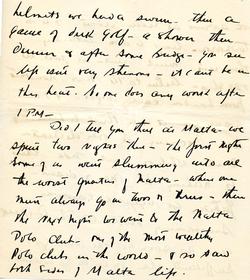 helmets we had a swim - then a
game of deck Golf - a shower then
Dinner & after some bridge - You see
life isn't very strenuous - it can't be in
this heat. No one does any work after
1 PM -
Did I tell you then at Malta - we
spent two nights there - The first night
some of us went slumming into all
the worst quarters of Malta - where one
must always go in twos or threes - then
the next night we went to the Malta
Polo Club - one of the most wealthy
Polo clubs in the world - & so saw
both sides of Malta life.